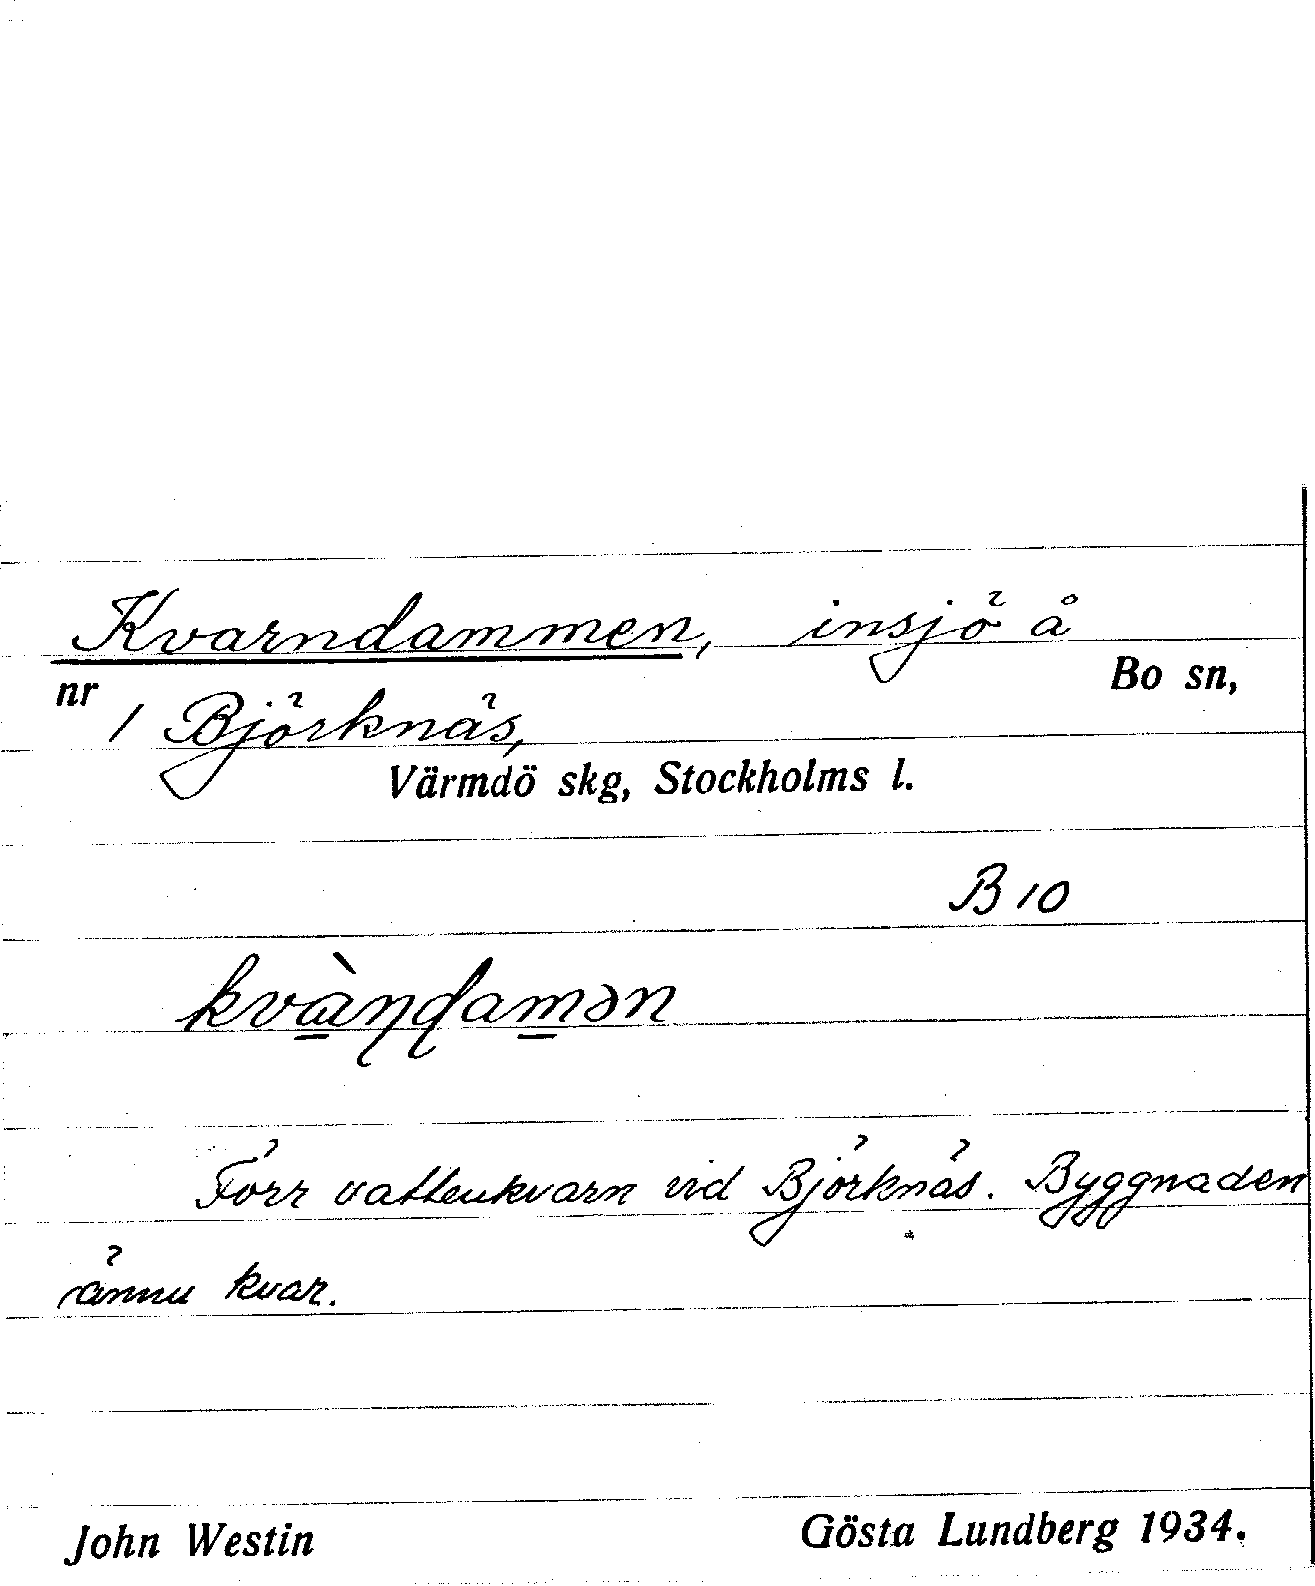 Kvarndammen, insjö å
Bo sn,
nr 1 Björknäs,
Värmdö skg, Stockholms l.
B 10
kvàɳɖamən
Förr vattenkvarn vid Björknäs. Byggnaden
ännu kvar.
John Westin Gösta Lundberg 1934.